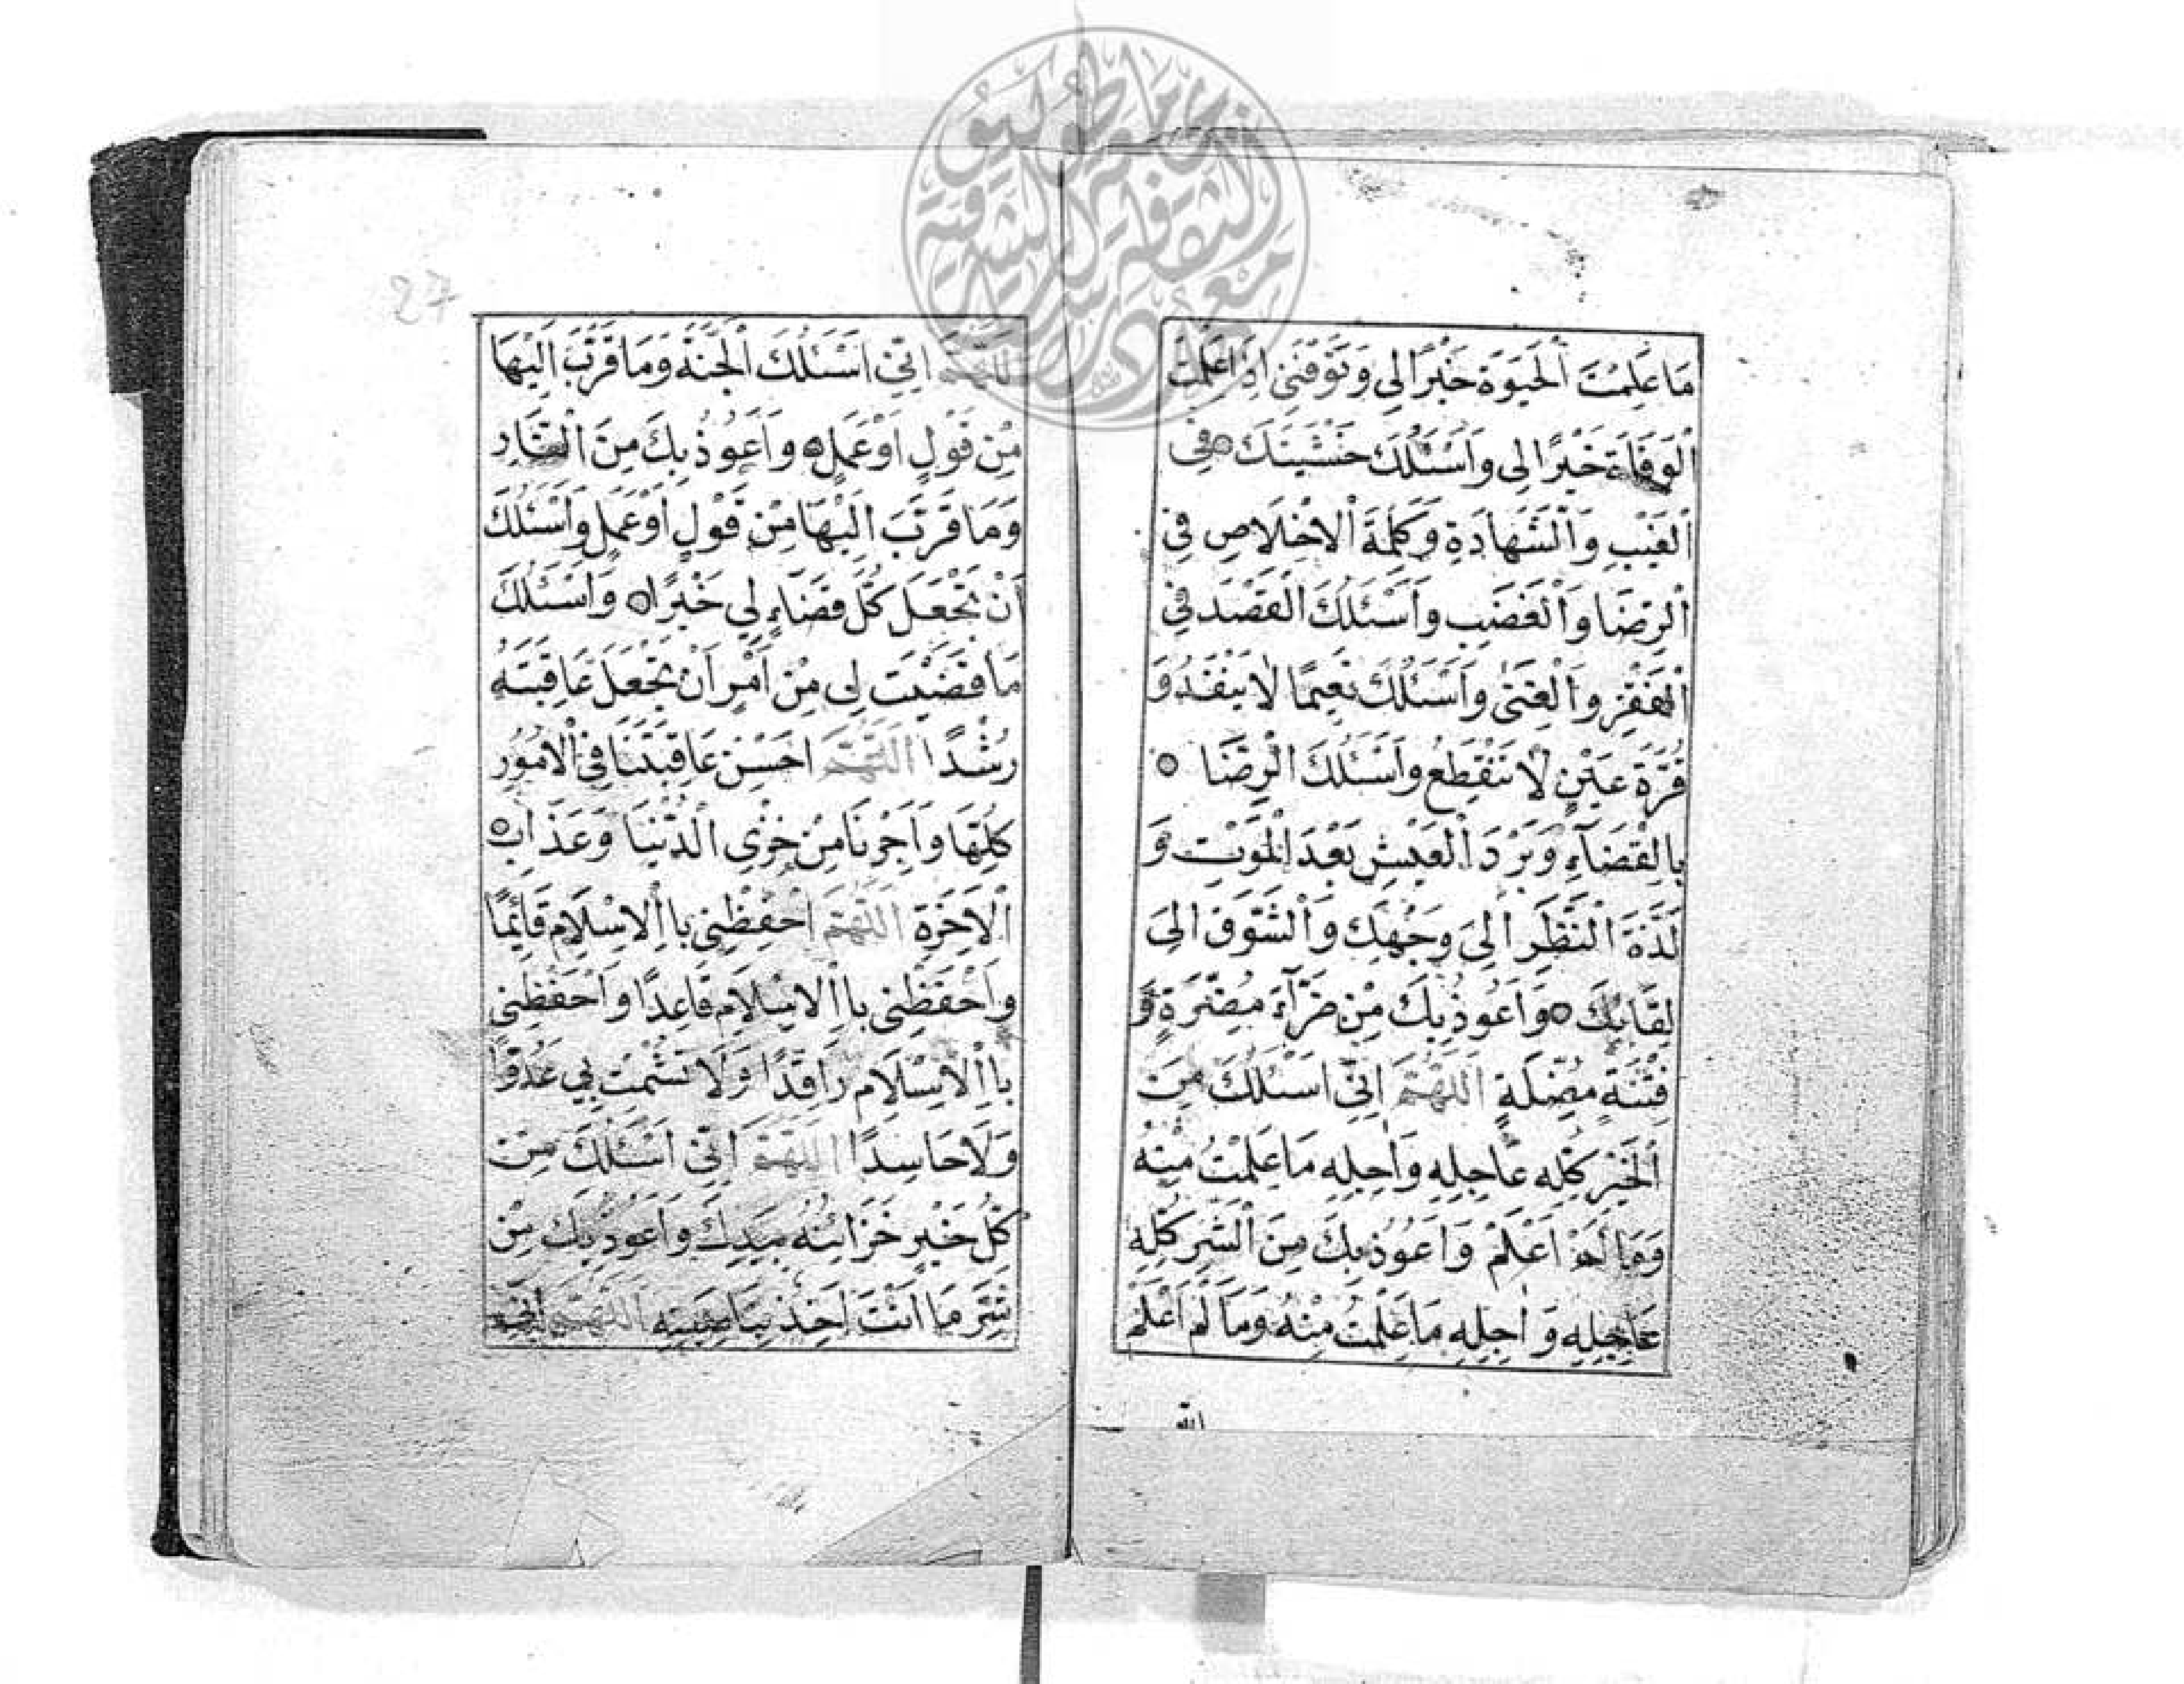 مَا عَلِمْتَ الْحَيَوةَ خَيْرًا لِي وَتَوَفَّنِي اِذَا عَلِمْتَ
اَلْوَفَاةَ خَيْرًا لِي وَاَسْئَلُكَ خَشْيَتَكَ فِي
اَلْغَيْبِ وَالشَّهَادَةِ وَكَلِمَةَ الْاِخْلَاصِ فِي
الرِّضَا وَالْغَضَبِ وَاَسْئَلُكَ الْقَصْدَ فِي
اَلْفَقْرِ وَالْغِنَى وَاَسْئَلُكَ نَعِيمًا لَا يَنْفَدُ وَ
قُرَّةَ عَيْنٍ لَا تَنْقَطِعُ وَاَسْئَلُكَ الرِّضَا
بِالْقَضَآءِ وَبَرْدَ الْعَيْشِ بَعْدَ الْمَوْتِ وَ
لَذَّةَ النَّظَرِ اِلَى وَجْهِكَ وَالشَّوْقَ اِلَى
لِقَائِكَ وَاَعُوذُ بِكَ مِنْ ضَرَّآءَ مُضِرَّةٍ وَ
فِتْنَةٍ مُضِلَّةٍ اَللّٰهُمَّ اِنِّي اَسْئَلُكَ مِنَ
اَلْخَيْرِ كُلِّهِ عَاجِلِهِ وَاٰجِلِهِ مَا عَلِمْتُ مِنْهُ
وَمَا لَمْ اَعْلَمْ وَاَعُوذُ بِكَ مِنَ الشَّرِّ كُلِّهِ
عَاجِلِهِ وَاٰجِلِهِ مَا عَلِمْتُ مِنْهُ وَمَا لَمْ اَعْلَمْ
الله
27
اَللّٰهُمَّ اِنِّي اَسْئَلُكَ الْجَنَّةَ وَمَا قَرَّبَ اِلَيْهَا
مِنْ قَوْلٍ اَوْ عَمَلٍ وَاَعُوذُ بِكَ مِنَ النَّارِ
وَمَا قَرَّبَ اِلَيْهَا مِنْ قَوْلٍ اَوْ عَمَلٍ وَاَسْئَلُكَ
اَنْ تَجْعَلَ كُلَّ قَضَاءٍ لِي خَيْرًا وَاَسْئَلُكَ
مَا قَضَيْتَ لِي مِنْ اَمْرٍ اَنْ تَجْعَلَ عَاقِبَتَهُ
رُشْدًا اَللّٰهُمَّ اَحْسِنْ عَاقِبَتَنَا فِي الْاُمُورِ
كُلِّهَا وَاَجِرْنَا مِنْ خِزْيِ الدُّنْيَا وَعَذَابِ
الْاٰخِرَةِ اَللّٰهُمَّ احْفَظْنِي بِاالْاِسْلَامِ قَائِمًا
وَاحْفَظْنِي بِاالْاِسْلَامِ قَاعِدًا وَاحْفَظْنِي
بِاالْاِسْلَامِ رَاقِدًا وَلَا تُشْمِتْ بِي عَدُوًّا
وَلَا حَاسِدًا اَللّٰهُمَّ اِنِّي اَسْئَلُكَ مِنْ
كُلِّ خَيْرٍ خَزَائِنُهُ بِيَدِكَ وَاَعُوذُ بِكَ مِنْ
شَرِّ مَا اَنْتَ اٰخِذٌ بِنَاصِيَتِهِ اَللّٰهُمَّ اِنِّي